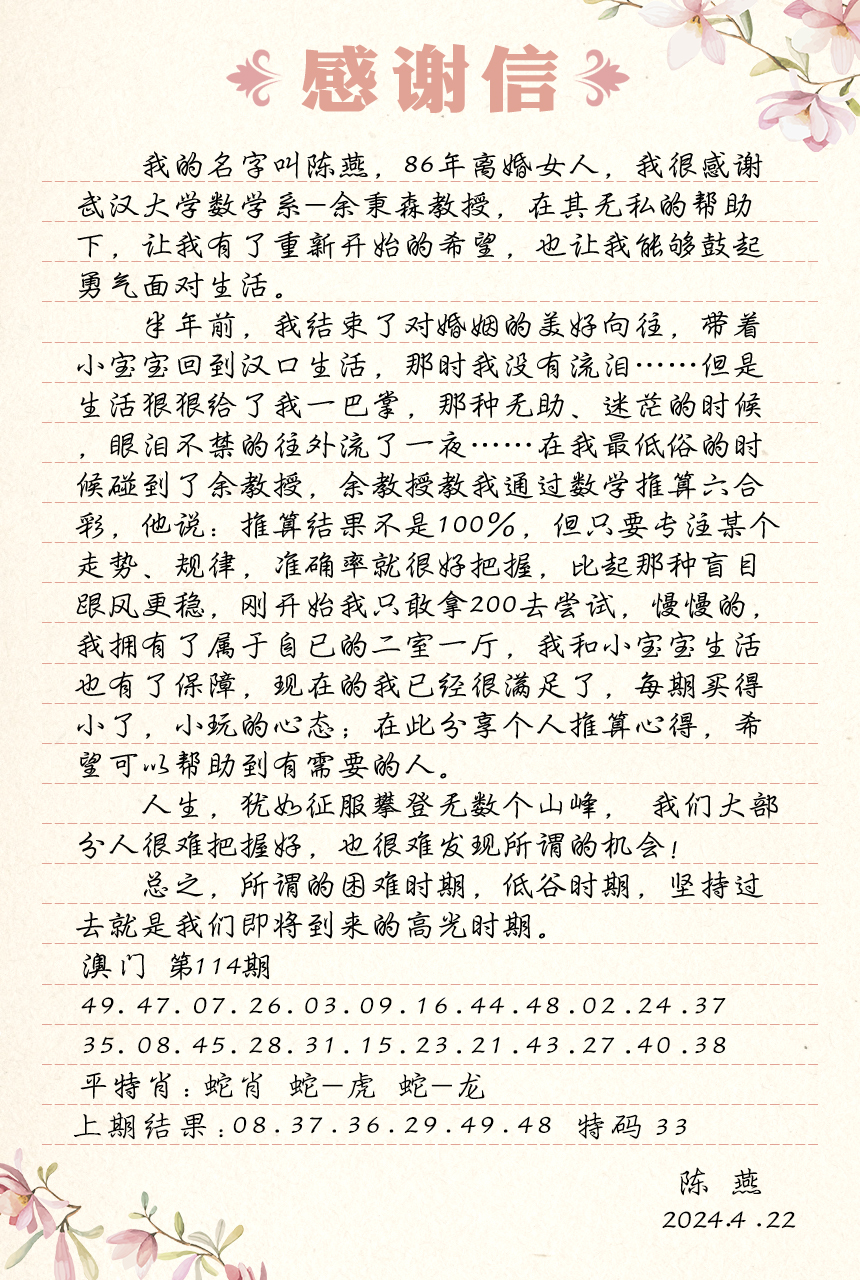 感谢信
我的名字叫陈燕，86年离婚女人，我很感谢
武汉大学数学系—余秉森教授，在其无私的帮助
下，让我有了重新开始的希望，也让我能够鼓起
勇气面对生活。
半年前，我结束了对婚姻的美好向往，带着
小宝宝回到汉口生活，那时我没有流泪……但是
生活狠狠给了我一巴掌，那种无助、迷茫的时候
，眼泪不禁的往外流了一夜……在我最低俗的时
候碰到了余教授，余教授教我通过数学推算六合
彩，他说：推算结果不是100%，但只要专注某个
走势、规律，准确率就很好把握，比起那种盲目
跟风更稳，刚开始我只敢拿200去尝试，慢慢的，
我拥有了属于自已的二室一厅，我和小宝宝生活
也有了保障，现在的我已经很满足了，每期买得
小了，小玩的心态；在此分享个人推算心得，希
望可以帮助到有需要的人。
人生，犹如征服攀登无数个山峰， 我们大部
分人很难把握好，也很难发现所谓的机会！
总之，所谓的困难时期，低谷时期，坚持过
去就是我们即将到来的高光时期。
澳门 第114期
49.47.07.26.03.09.16.44.48.02.24.37
35.08.45.28.31.15.23.21.43.27.40.38
平特肖：蛇肖 蛇—虎 蛇—龙
上期结果：08.37.36.29.49.48 特码 33
陈 燕
2024.4.22